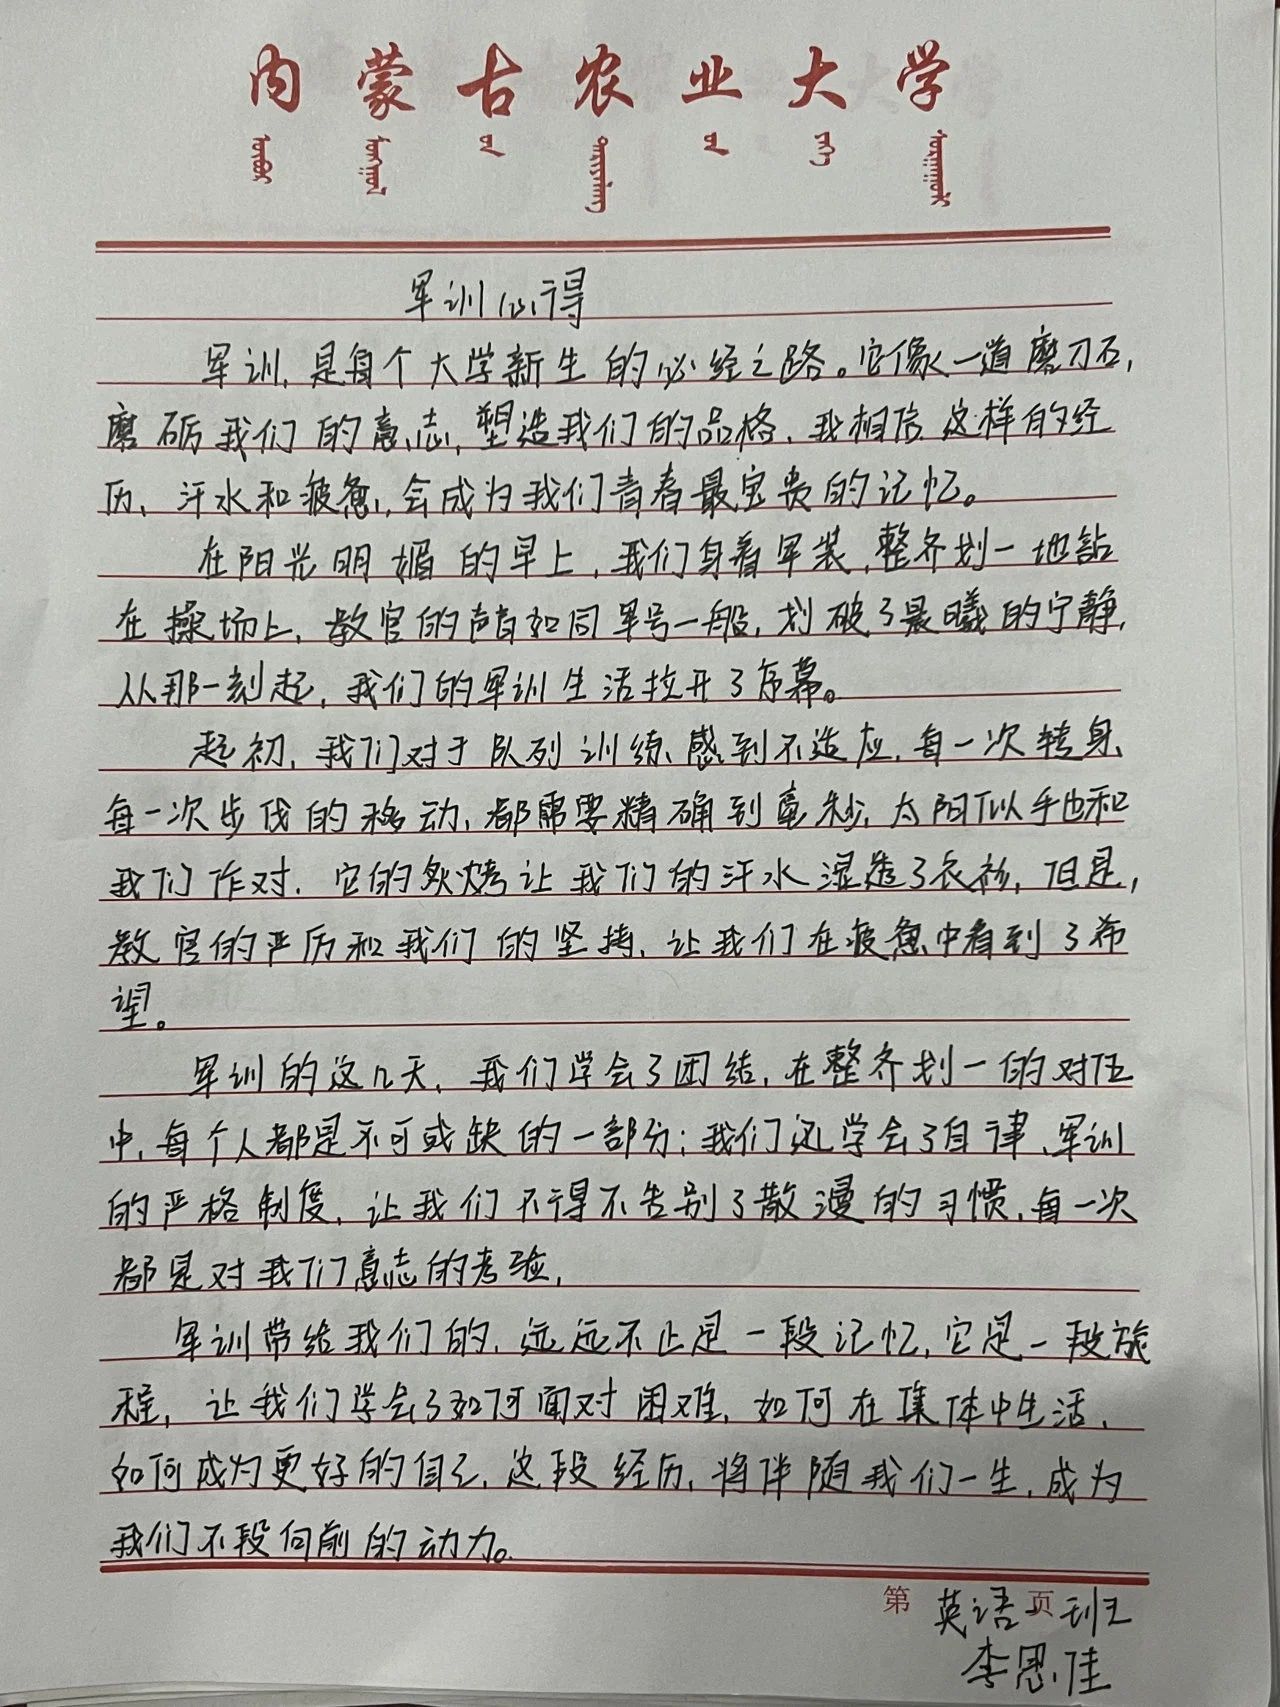 内蒙古农业大学
军训心得
军训，是每个大学新生的必经之路。它像一道磨刀石，
磨砺我们的意志，塑造我们的品格，我相信这样的经
历、汗水和疲惫，会成为我们青春最宝贵的记忆。
在阳光明媚的早上，我们身着军装，整齐划一地站
在操场上，教官的声音如同军号一般，划破了晨曦的宁静，
从那一刻起，我们的军训生活拉开了序幕。
起初，我们对于队列训练感到不适应，每一次转身、
每一次步伐的移动，都需要精确到毫秒，太阳似乎也和
我们作对，它的炙烤让我们的汗水湿透了衣衫，但是，
教官的严厉和我们的坚持，让我们在疲惫中看到了希
望。
军训的这几天，我们学会了团结，在整齐划一的对伍
中，每个人都是不可或缺的一部分；我们还学会了自律，军训
的严格制度，让我们不得不告别了散漫的习惯，每一次
都是对我们意志的考验，
军训带给我们的，远远不止是一段记忆，它是一段旅
程，让我们学会了如何面对困难，如何在集体中生活，
如何成为更好的自己，这段经历，将伴随我们一生，成为
我们不段向前的动力。
第 页
英语一班
李思佳